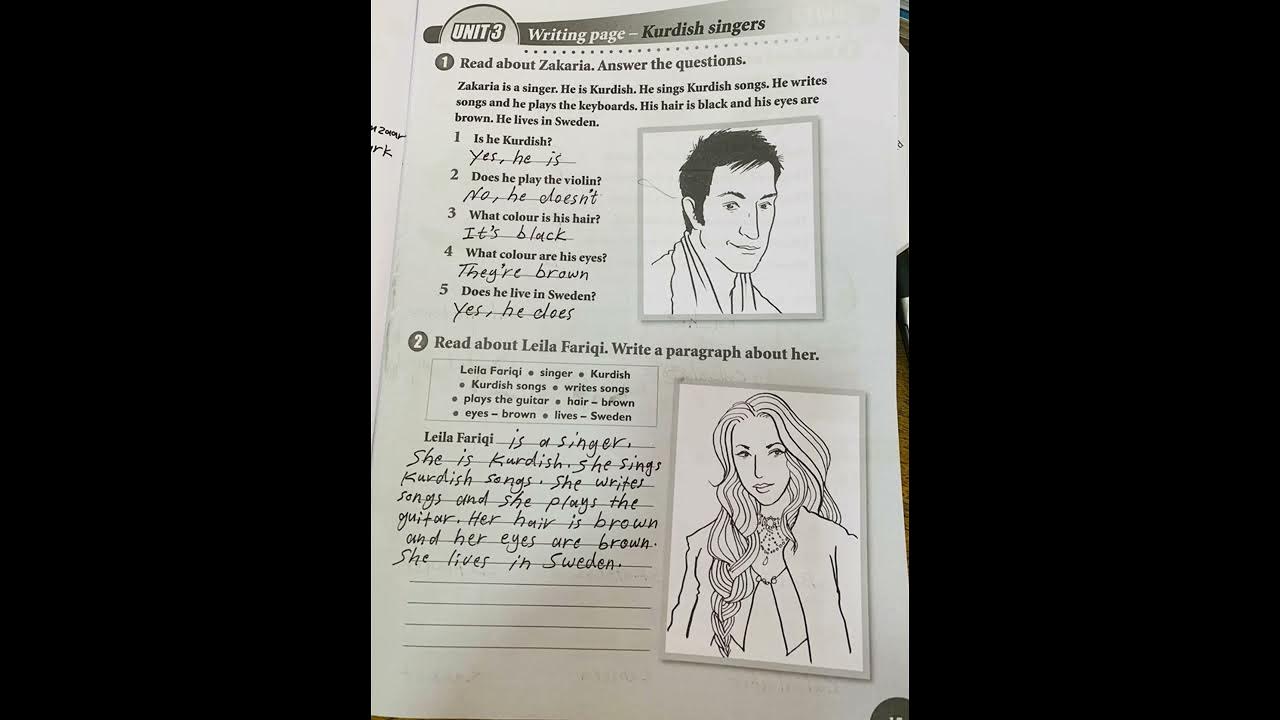 UNIT 3 Writing page – Kurdish singers
1 Read about Zakaria. Answer the questions.
Zakaria is a singer. He is Kurdish. He sings Kurdish songs. He writes
songs and he plays the keyboards. His hair is black and his eyes are
brown. He lives in Sweden.
1 Is he Kurdish?
Yes, he is
2 Does he play the violin?
No, he doesn't
3 What colour is his hair?
It's black
4 What colour are his eyes?
They're brown
5 Does he live in Sweden?
Yes, he does
2 Read about Leila Fariqi. Write a paragraph about her.
Leila Fariqi • singer • Kurdish
• Kurdish songs • writes songs
• plays the guitar • hair – brown
• eyes – brown • lives – Sweden
Leila Fariqi is a singer.
She is Kurdish. She sings
Kurdish songs. She writes
songs and she plays the
guitar. Her hair is brown
and her eyes are brown.
She lives in Sweden.